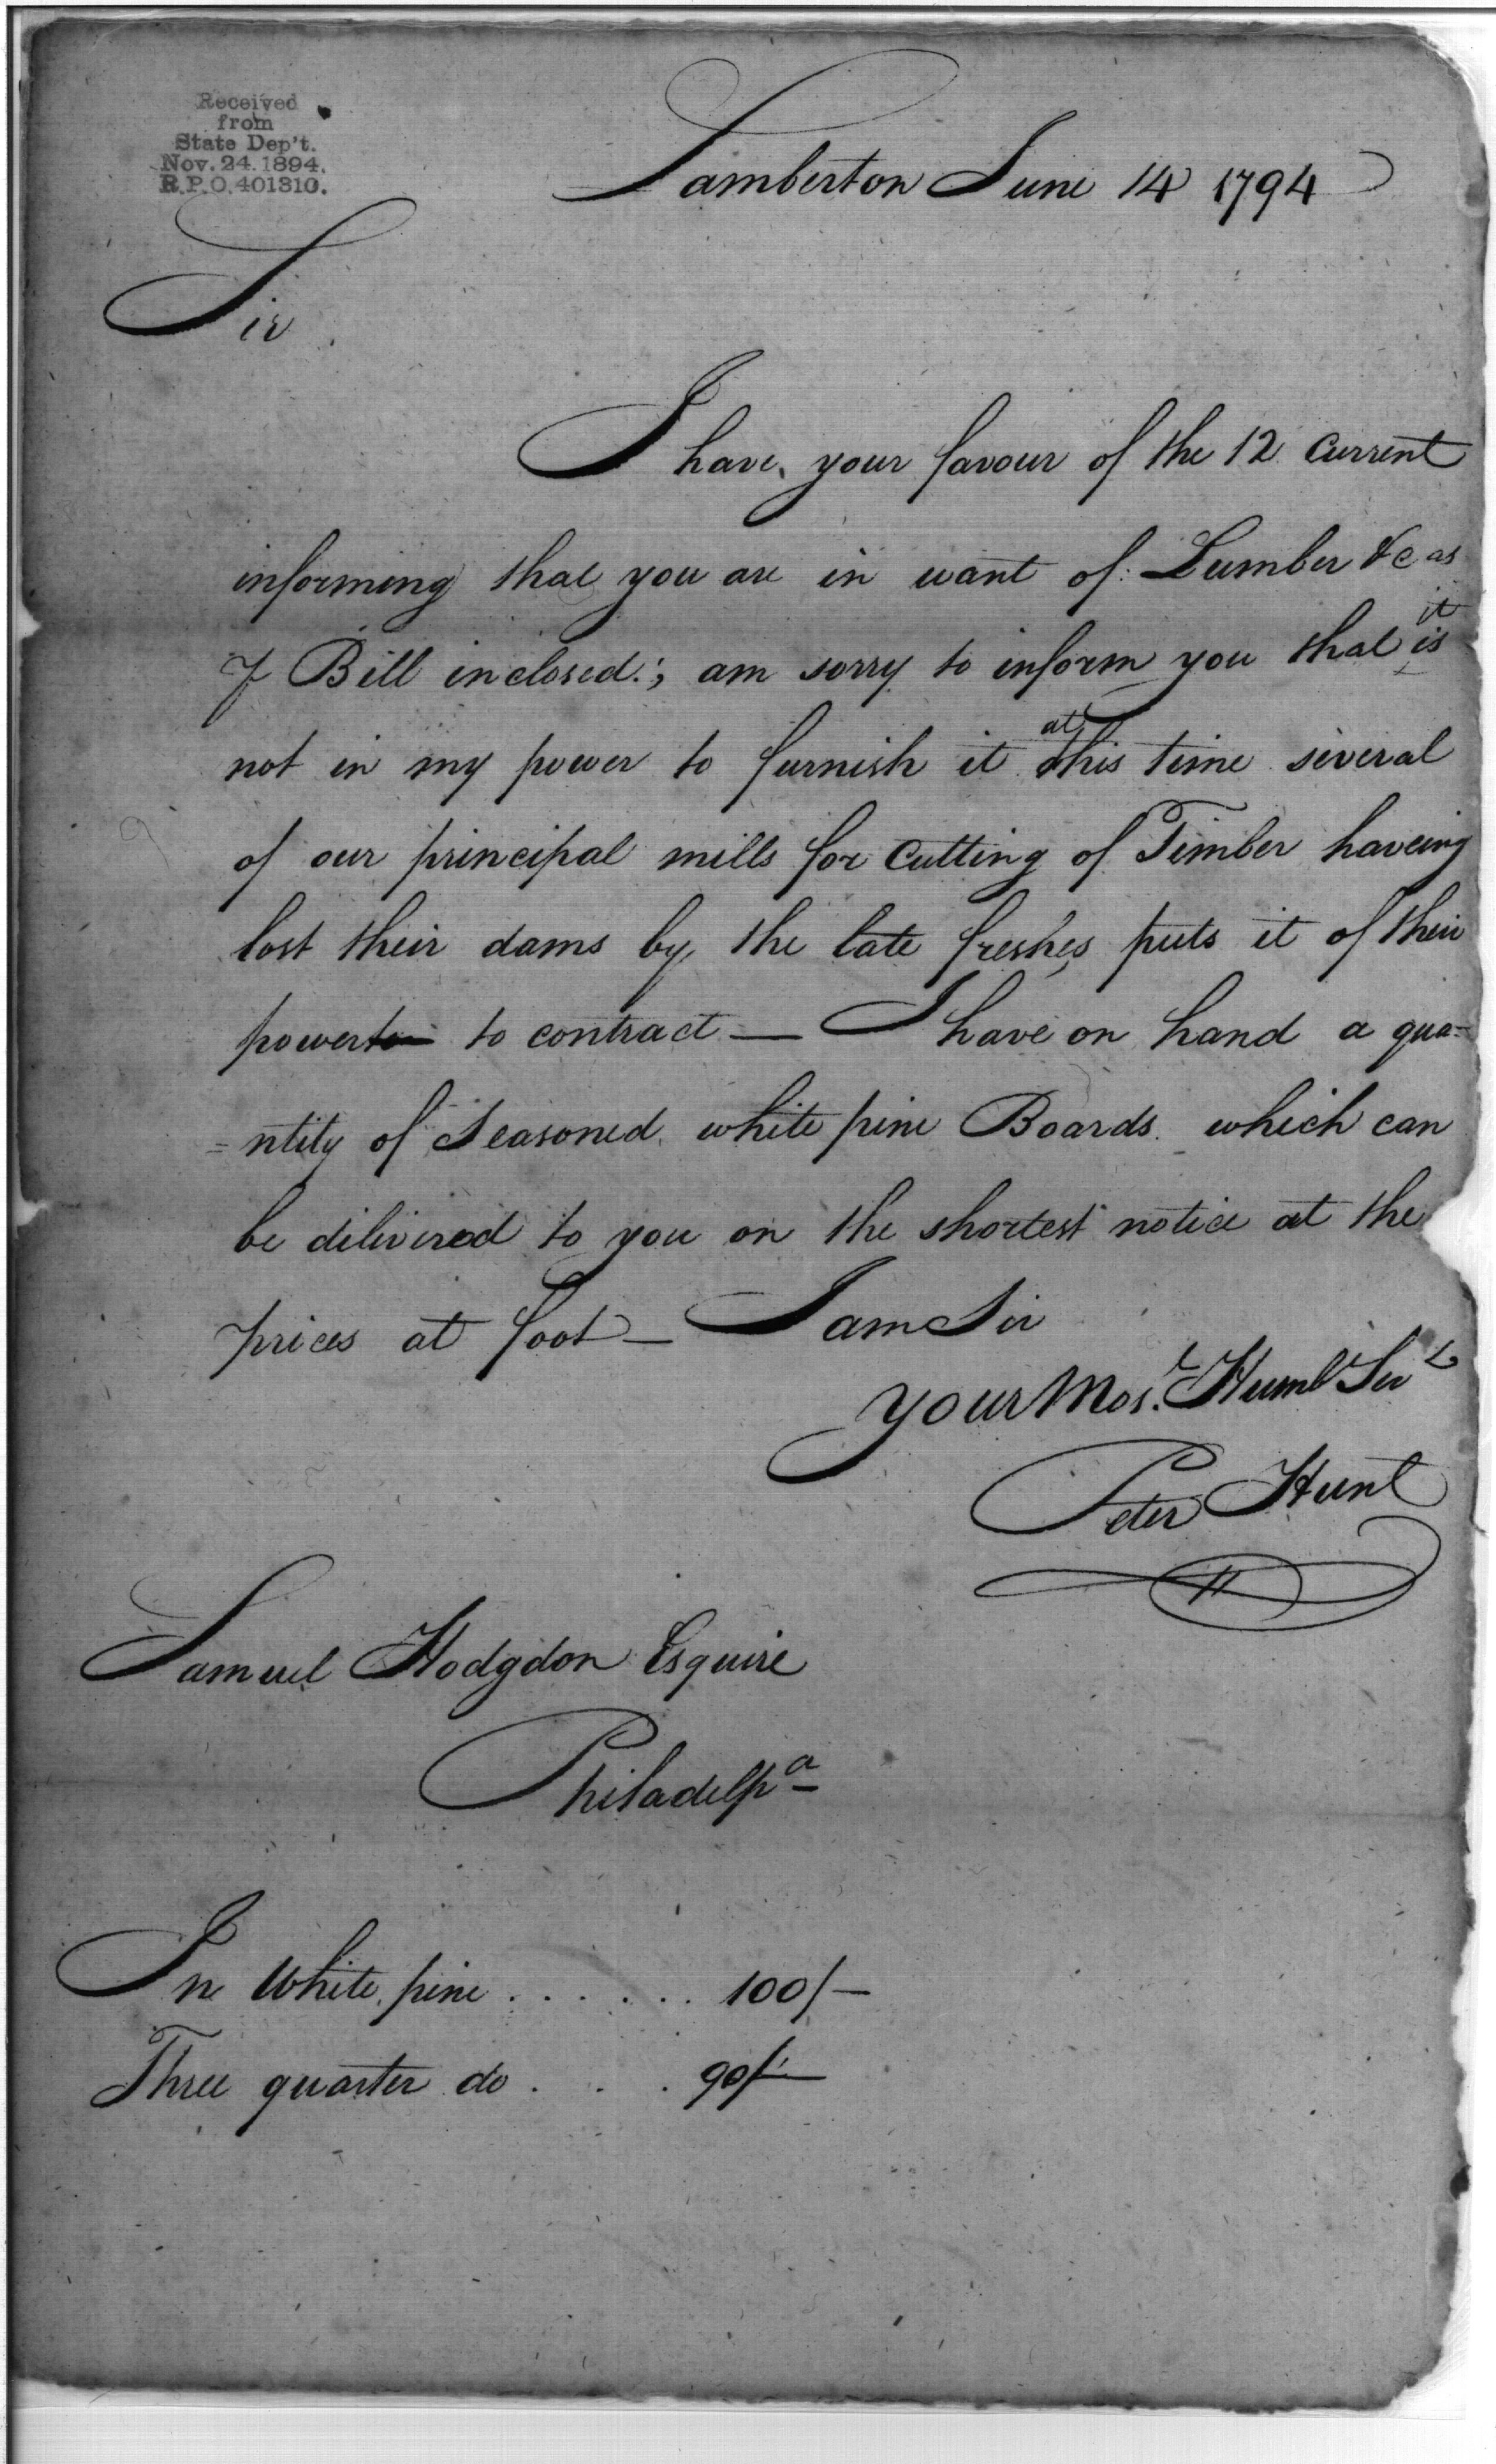 Received
from
State Dep't.
Nov. 24. 1894.
R.P.O. 401310.
Lamberton June 14 1794
Sir
I have your favour of the 12 Current
informing that you are in want of Lumber &c as
⅌ Bill inclosed; am sorry to inform you that it is
not in my power to furnish it at this time several
of our principal mills for Cutting of Timber haveing
lost their dams by the late freshes puts it of their
power to to contract — I have on hand a qua=
=ntity of Seasoned white pine Boards which can
be delivered to you on the shortest notice at the
prices at foot — I am Sir
your Most Humbl Sert
Peter Hunt
Samuel Hodgdon Esquire
Philadelpa
In White pine . . . . . . 100/—
Three quarter do . . . 90/—